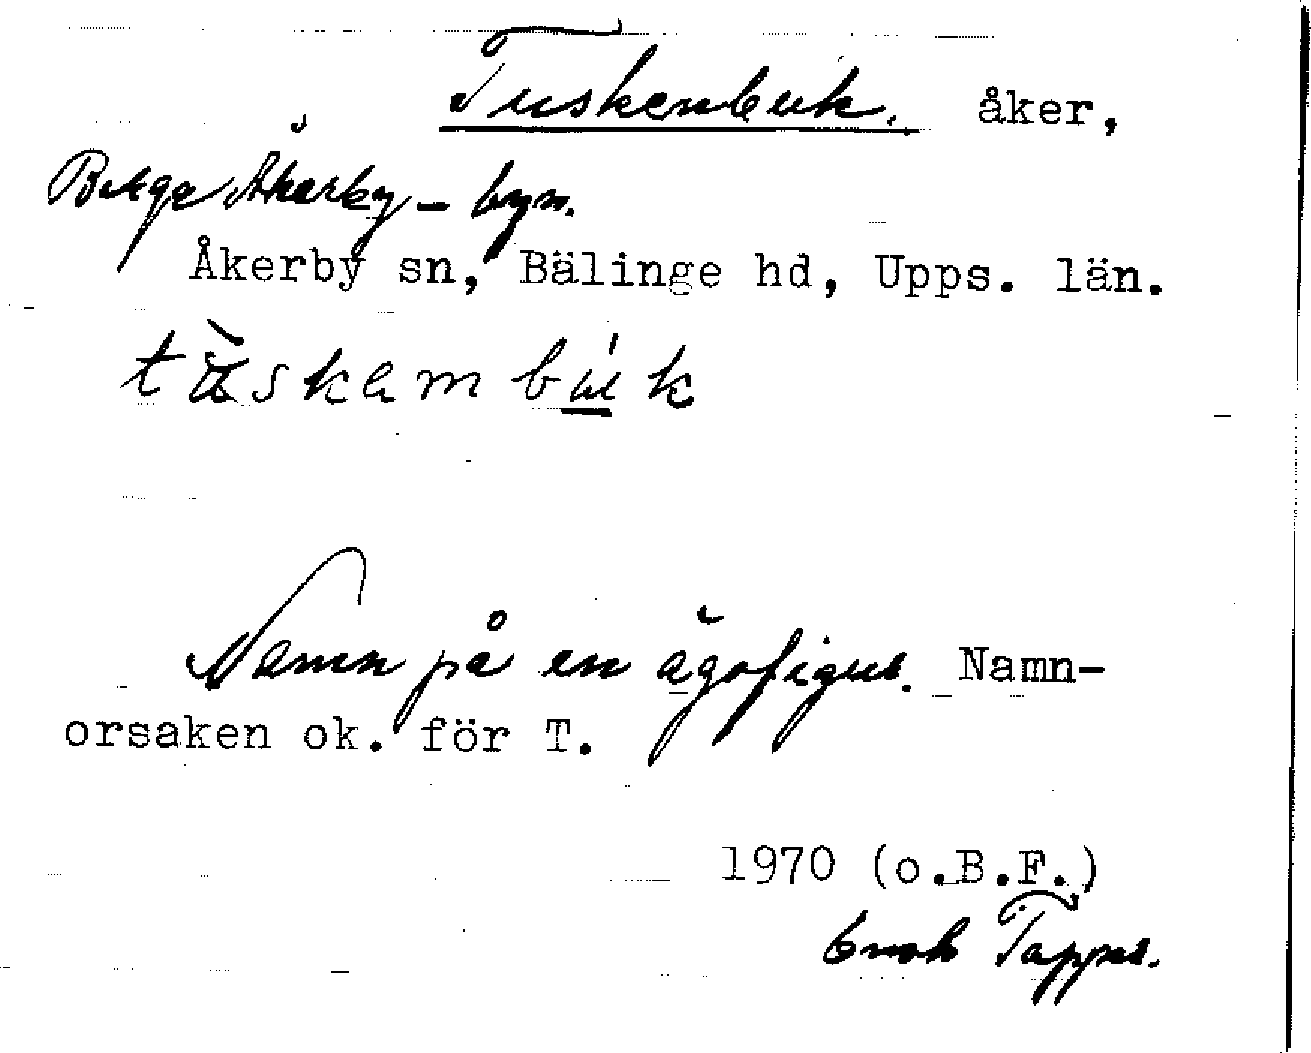 Tuskenbuk. åker,
Åkerby - byn.
Åkerby sn, Bälinge hd, Upps. län.
Namn på en ägofigur. Namn-
orsaken ok. för T.
1970 (o.B.F.)
Enok Tapper.